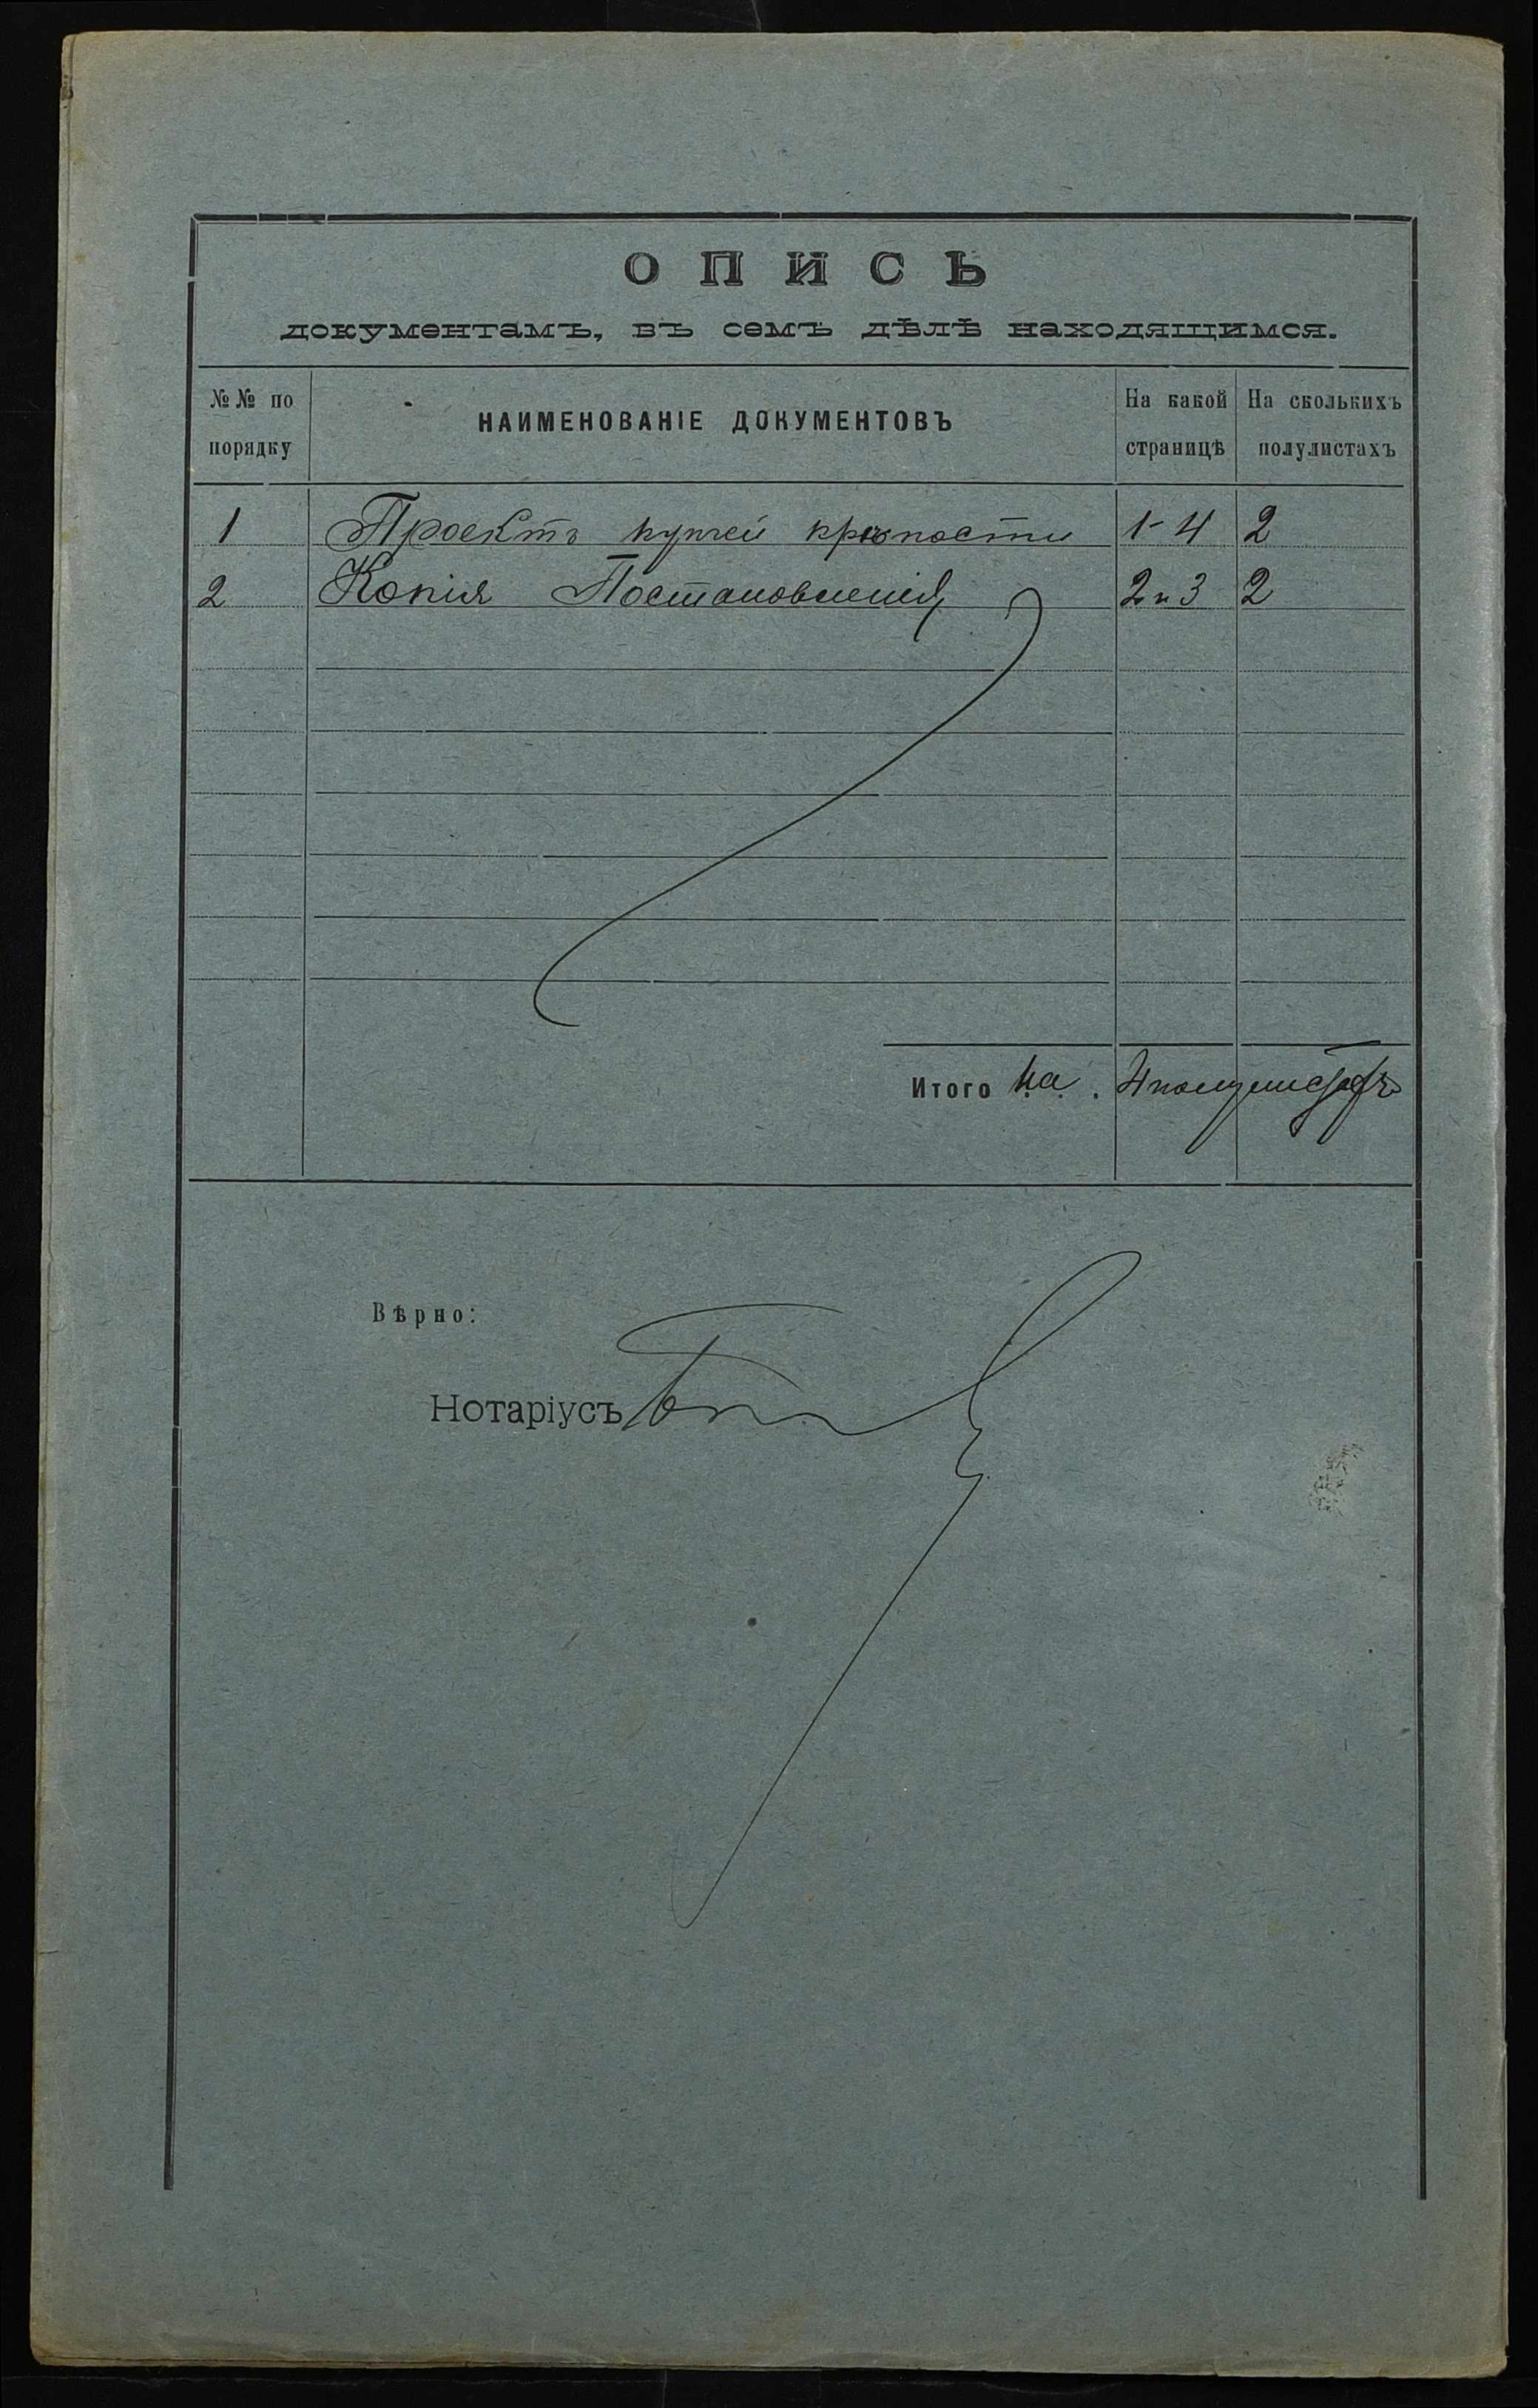 ОПИСЬ
документамъ, въ семъ дѣлѣ находящимся.
№№ по порядку
НАИМЕНОВАНІЕ ДОКУМЕНТОВЪ
На какой страницѣ
На сколькихъ полулистахъ
1 Проектъ купчей крѣпости 1-4 2
2 Копія Постановленія 2 и 3 2
Итого на 4 полулистахъ
Вѣрно:
Нотаріусъ